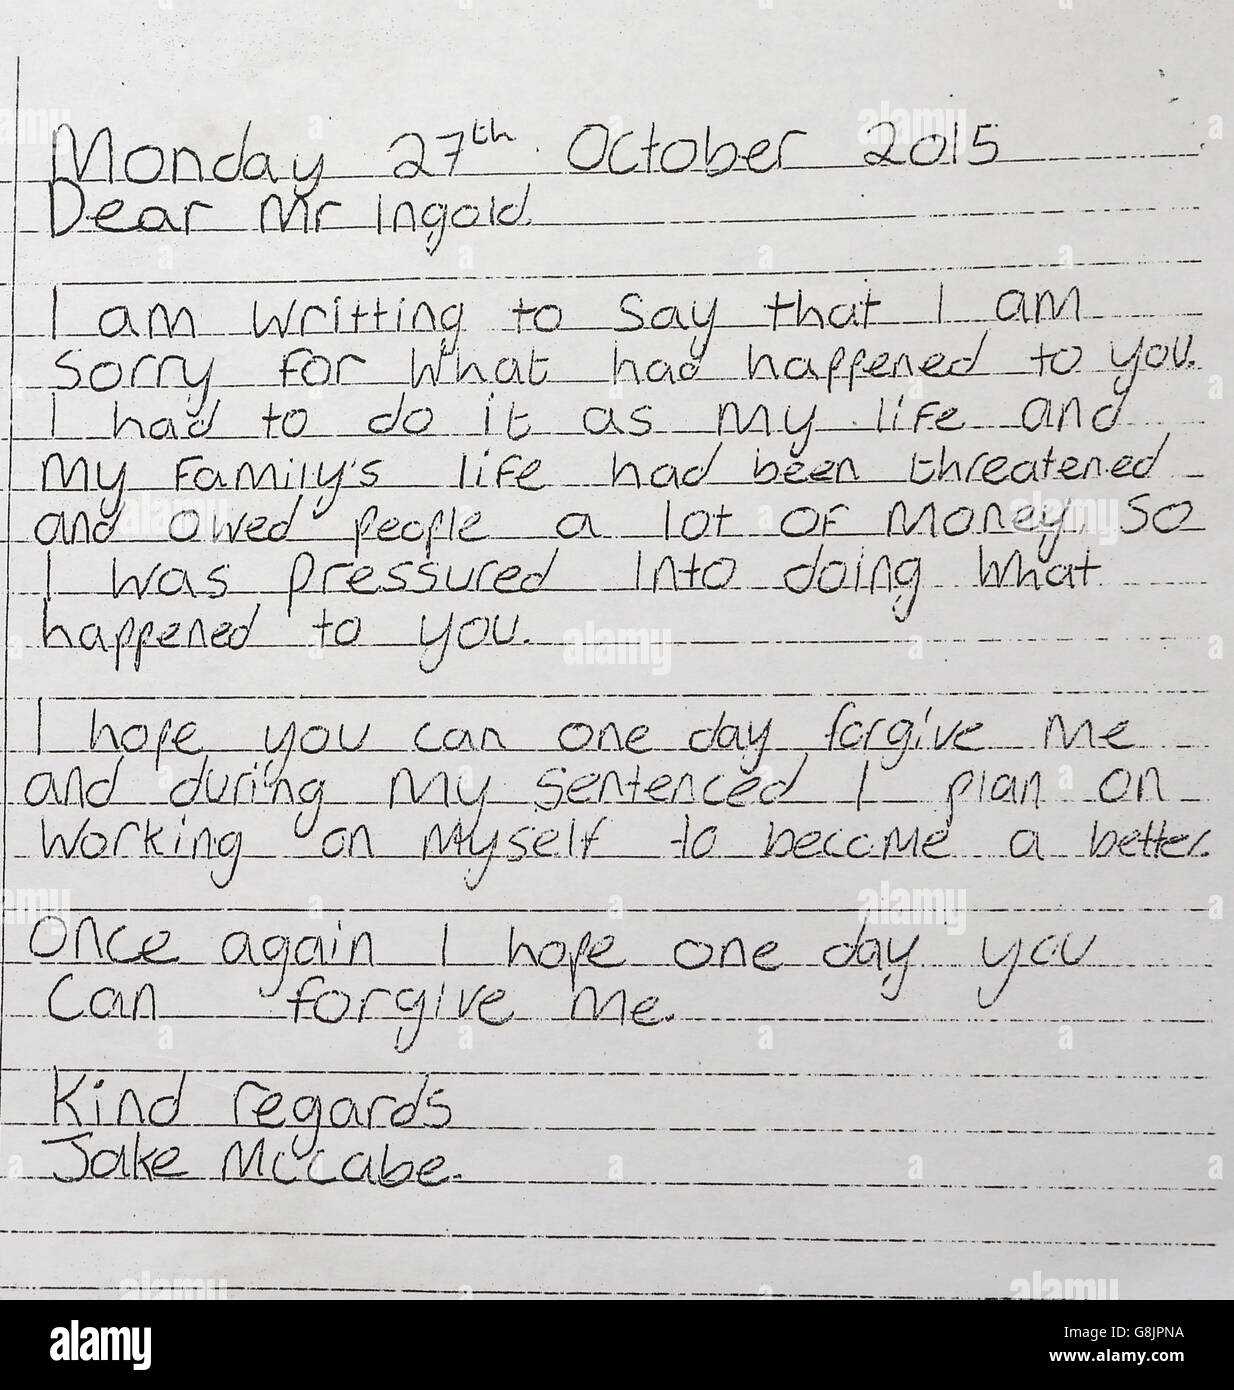 Monday 27th October 2015
Dear Mr Ingold
I am writting to say that I am
sorry for what had happened to you.
I had to do it as my life and
my family's life had been threatened
and owed people a lot of money, so
I was pressured into doing what
happened to you.
I hope you can one day forgive me
and during my sentenced I plan on
working on myself to become a better.
Once again I hope one day you
can forgive me.
Kind regards
Jake McCabe.
alamy
Image ID: G8JPNA
www.alamy.com